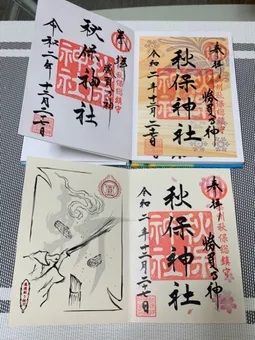 奉拝
勝負の神
秋保神社
令和二年十二月二十七日
奉拝
勝負の神
秋保神社
令和二年十二月二十七日
奉拝
秋保総鎮守
勝負の神
秋保神社
令和二年十二月二十七日